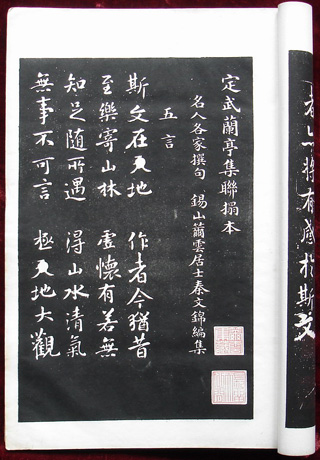 定武蘭亭集聯搨本
名人各家撰句　錫山繭雲居士秦文錦編集
五言
斯文在天地　作者今猶昔
至樂寄山林　虛懷有若無
知足隨所遇　得山水清氣
無事不可言　極天地大觀
者亦將有感於斯文